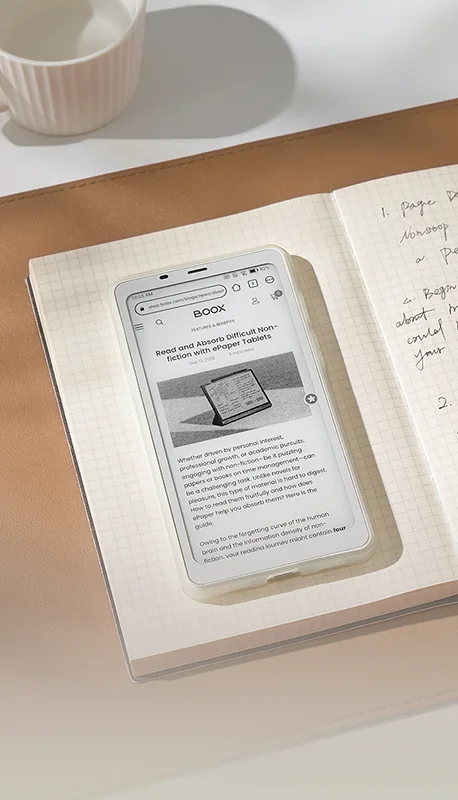 10:05 AM
82%
shop.boox.com/blogs/news/absor
BOOX
FEATURES & BENEFITS
Read and Absorb Difficult Non-
fiction with ePaper Tablets
Dec 13, 2023
Whether driven by personal interest,
professional growth, or academic pursuits,
engaging with non-fiction—be it puzzling
papers or books on time management—can
be a challenging task. Unlike novels for
pleasure, this type of material is hard to digest.
How to read them fruitfully and how does
ePaper help you absorb them? Here is the
guide.
Owing to the forgetting curve of the human
brain and the information density of non-
fiction, your reading journey might contain four
1. Page
Nonstop
a
2. Begin
about
could
your
2.